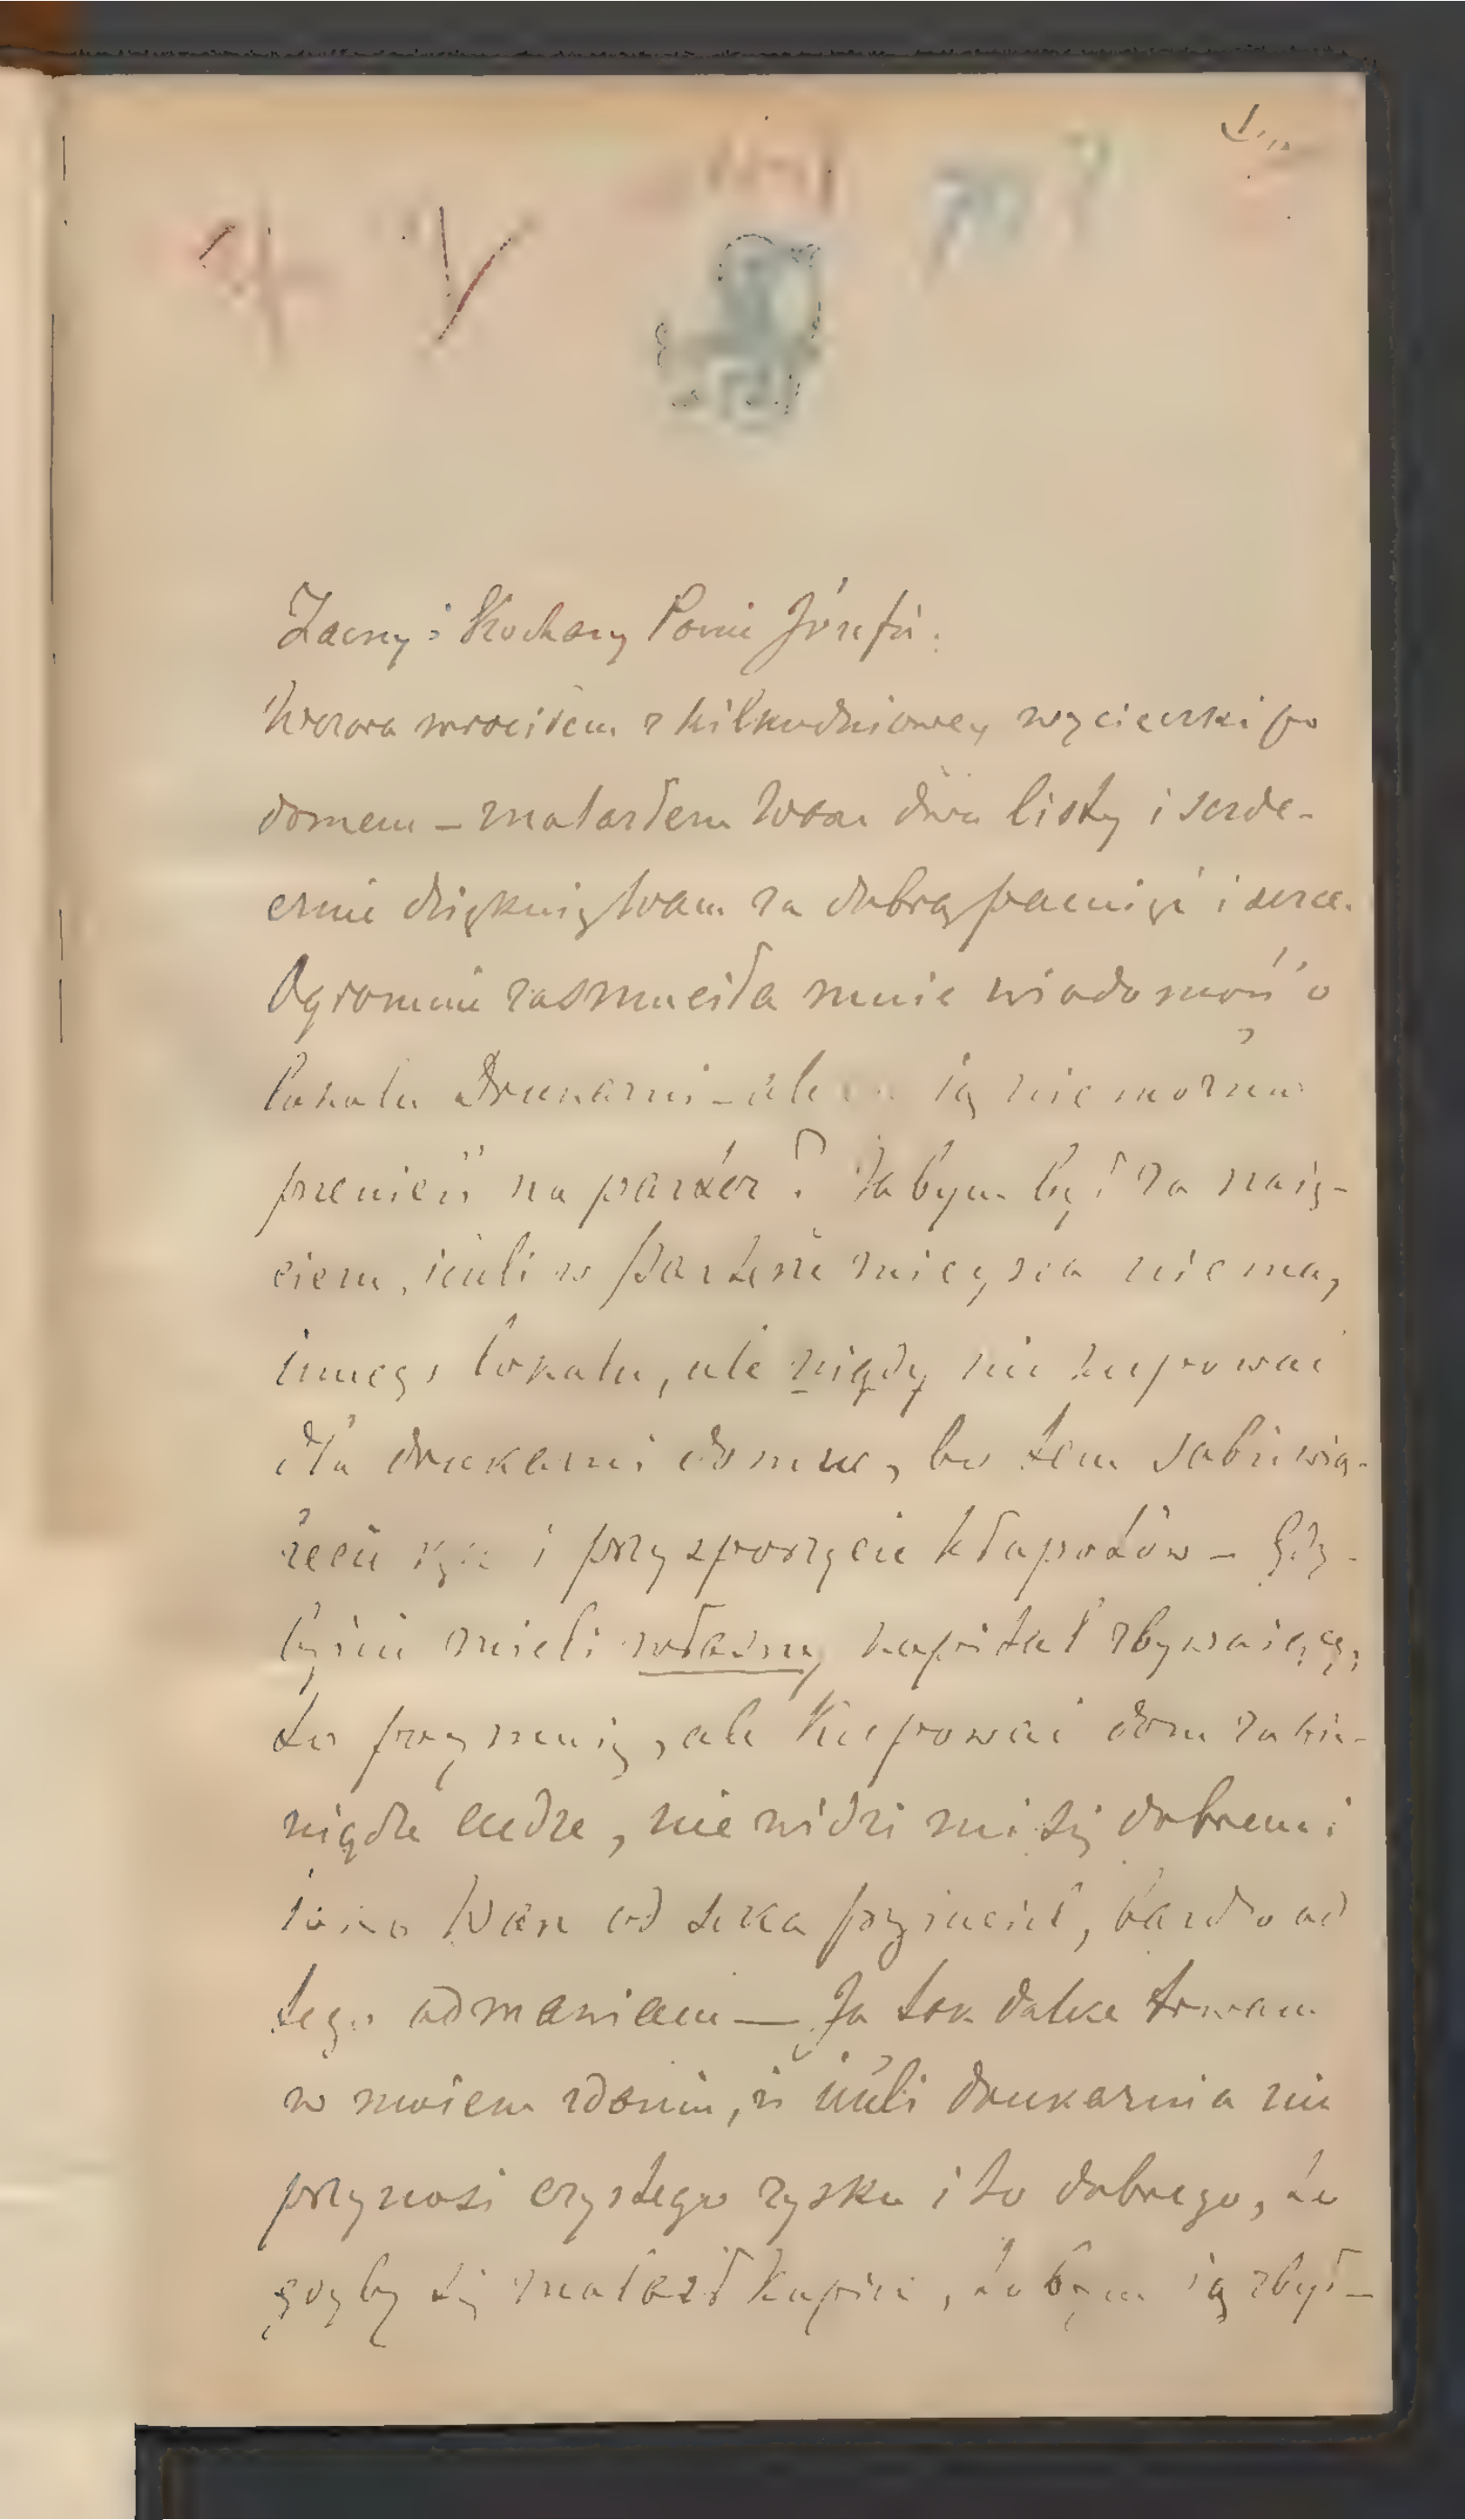 Zacny i Kochany Panie Józefie.
Wczora wrociłem z kilkudniowey wycieczki po
domem – znalazłem Wasze dwa listy i serde-
cznie dziękuię Wam za dobrą pamięć i serce.
Ogromnie zasmuciła mnie wiadomość o
lokalu Drukarni – ale ią nie można
przenieść na parter? Ja bym był za naię-
ciem, ieśli w parterze mieysca nie ma,
innego lokalu, ale nigdy nie kupować
dla drukarni domu, bo tem sobie wią-
zecie ręce i przysporzycie kłopotów – Gdy-
byście mieli własny kapitał zbywaiący,
to przyznaię, ale kupować dom za pie-
niądze cudze, nie widzi mi się dobrem i
iako Wasz od serca przyiaciel, bardzo od
tego odmawiam — Ja tak dalece trwam
w moiem zdaniu, iż ieśli drukarnia nie
przynosi czystego zysku i to dobrego, to
gdyby się znalazł kupiec, to bym ią zbył –